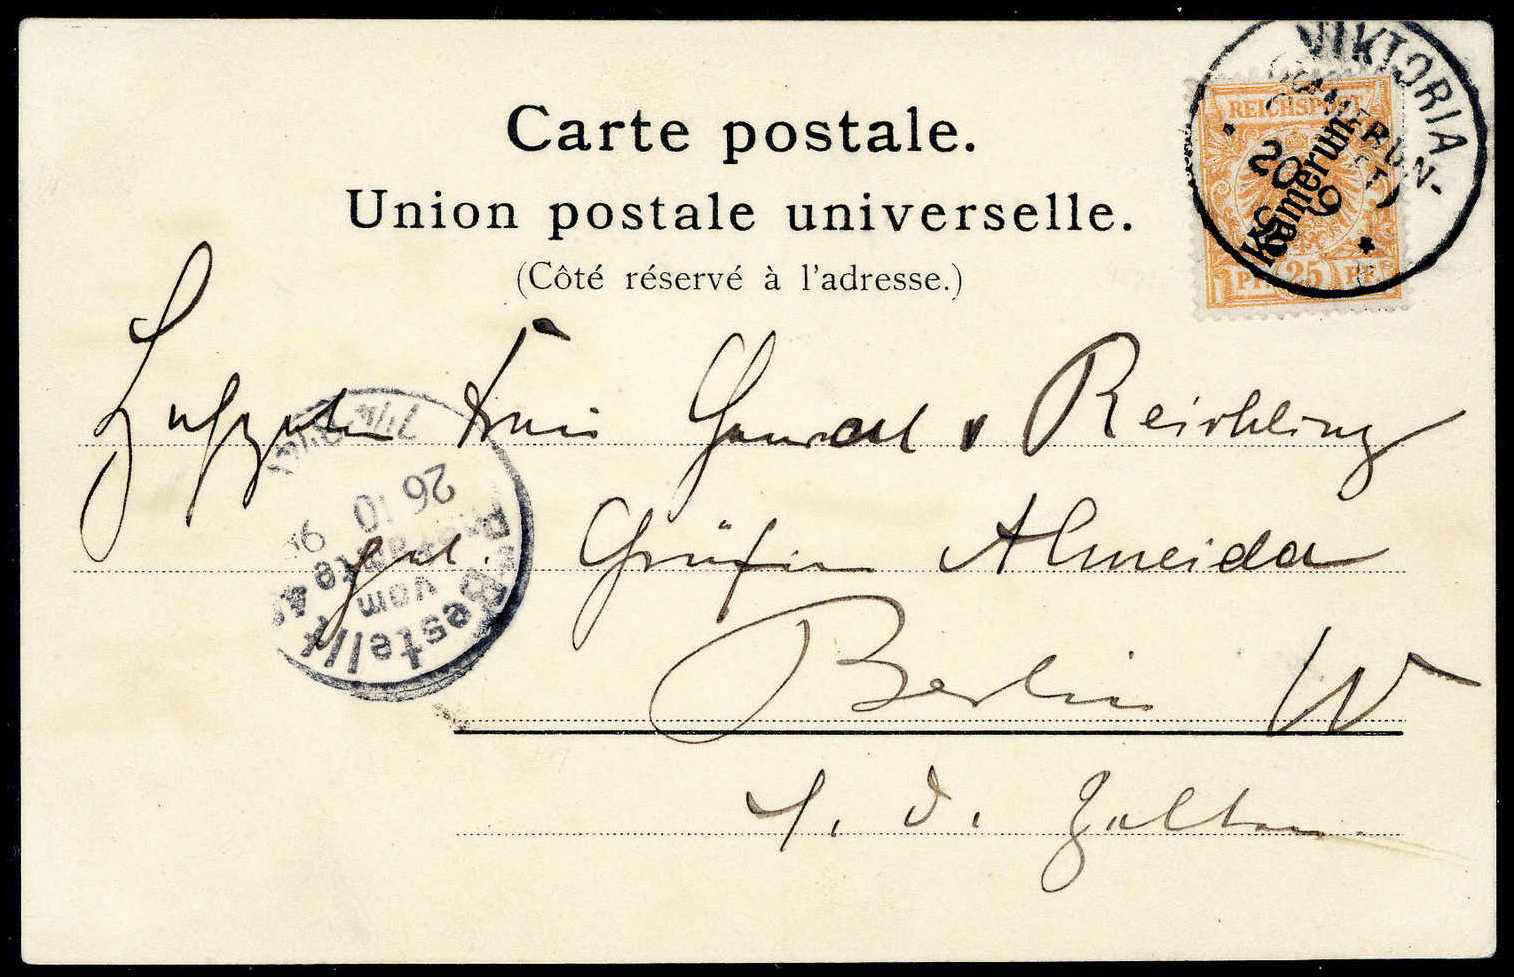 Carte postale.
Union postale universelle.
(Côté réservé à l'adresse.)
VIKTORIA
KAMERUN
20 9
REICHSPOST
Kamerun
PF 25 PF
Frau General v Reichling
geb. Gräfin Almeida
Berlin W
Bestellt
vom
Postamte
26 10